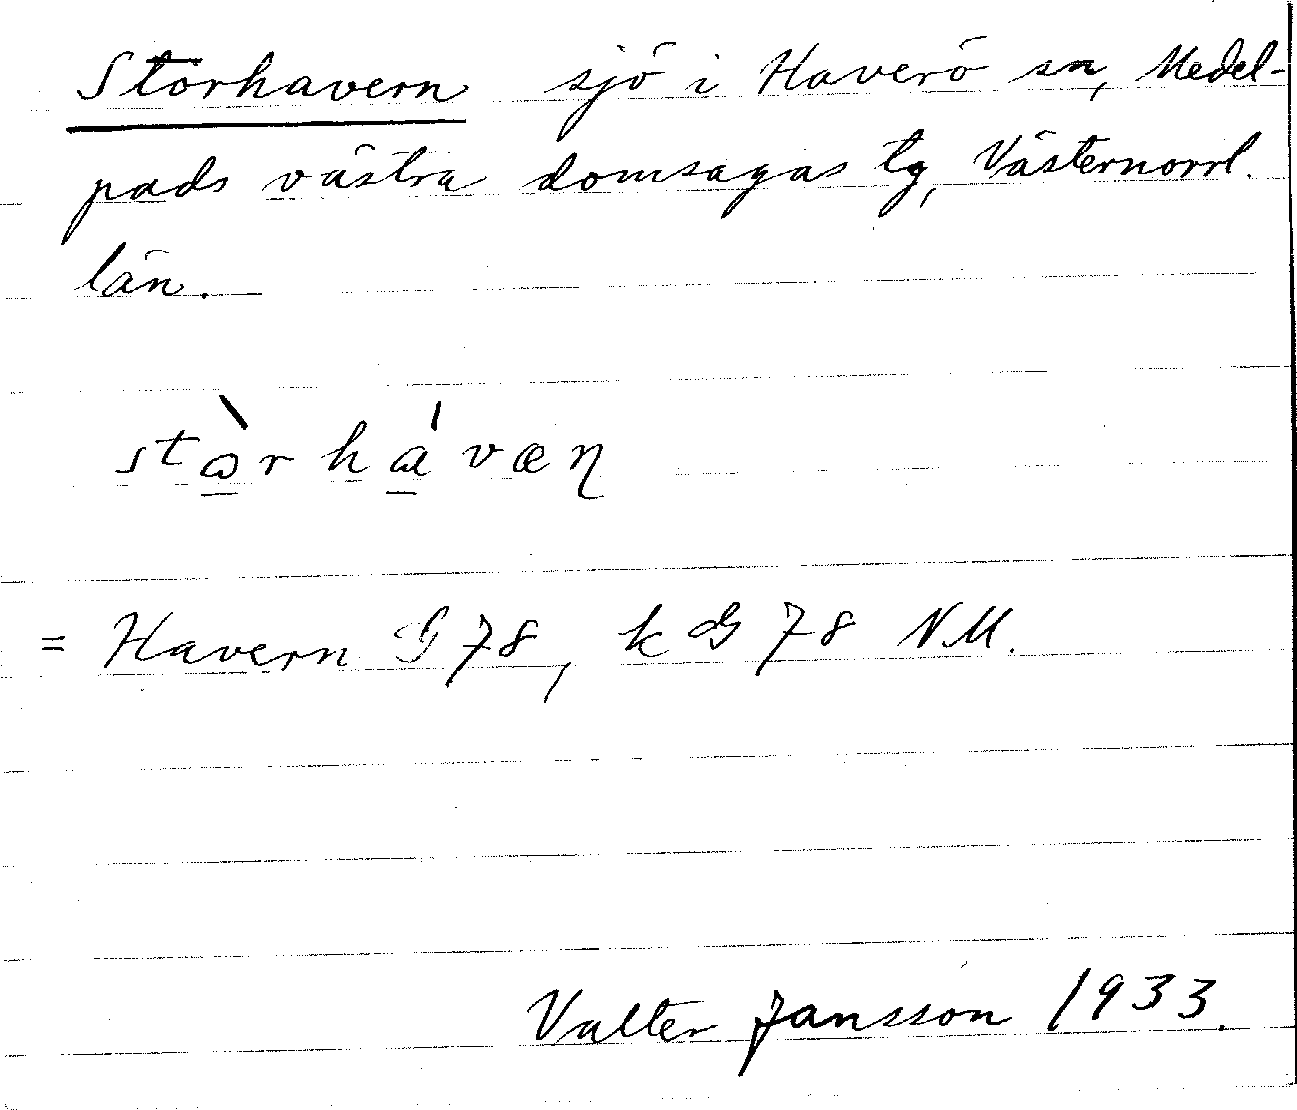 Storhavern sjö i Haverö sn, Medel-
pads västra domsagas tg, Västernorrl.
län.
stɷ̀rhɑ́væɳ
= Havern G 78, k G 78 NM.
Valter Jansson 1933.